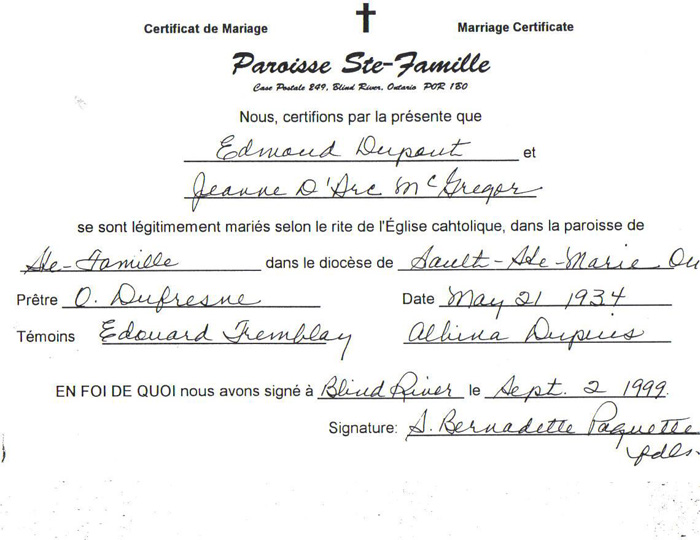 Certificat de Mariage Marriage Certificate
Paroisse Ste-Famille
Case Postale 249, Blind River, Ontario P0R 1B0
Nous, certifions par la présente que
Edmond Dupont et
Jeanne D'Arc McGregor
se sont légitimement mariés selon le rite de l'Église cahtolique, dans la paroisse de
Ste-Famille dans le diocèse de Sault-Ste-Marie On
Prêtre O. Dufresne Date May 21 1934
Témoins Edouard Tremblay Albina Dupuis
EN FOI DE QUOI nous avons signé à Blind River le Sept. 2 1999.
Signature: S. Bernadette Paquette